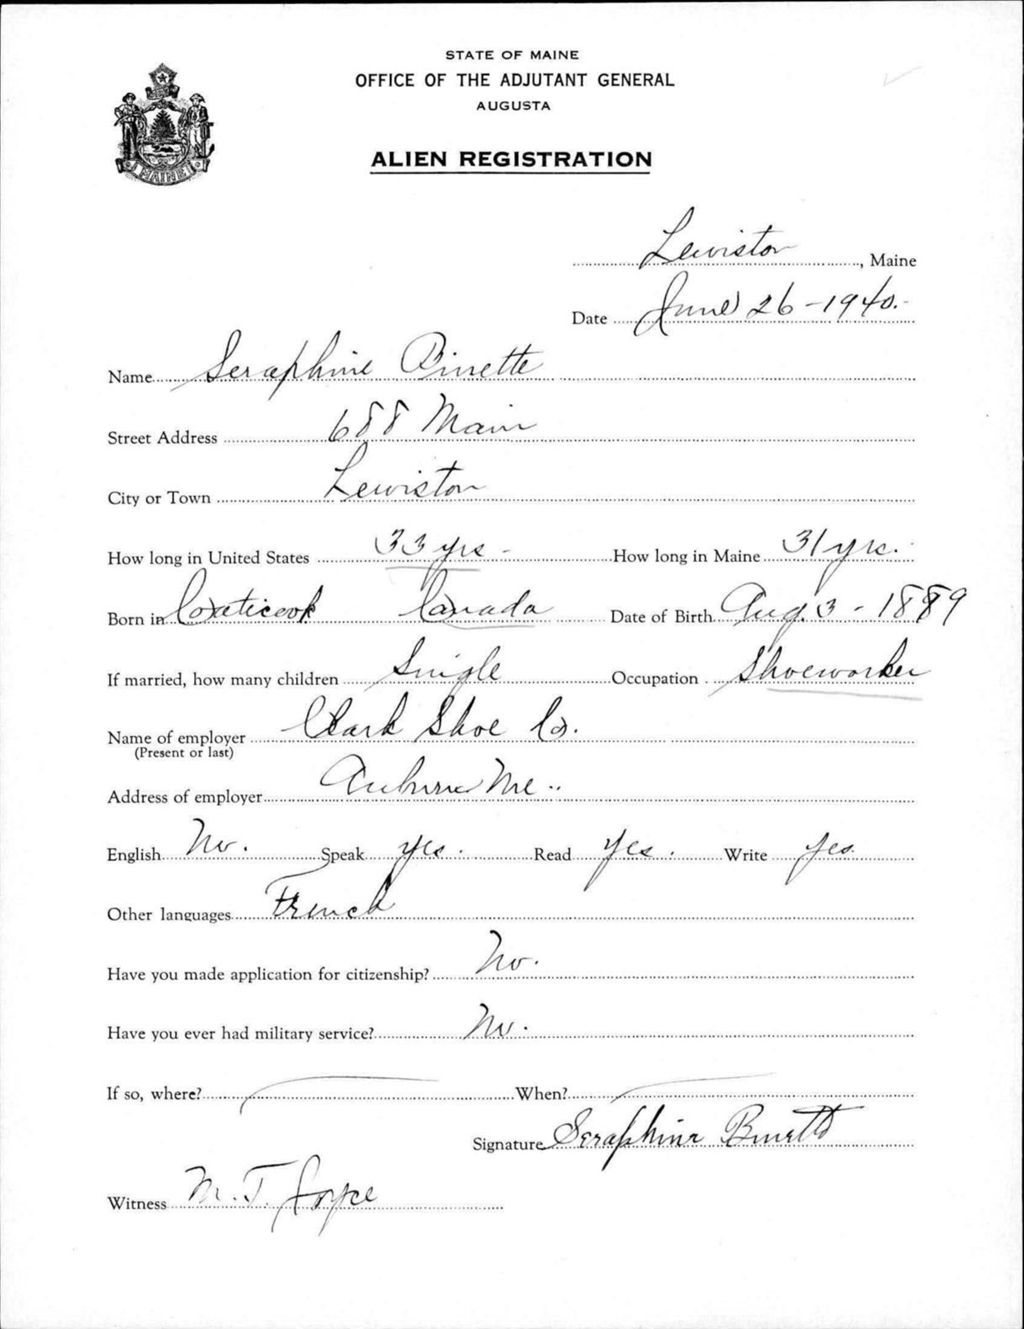 STATE OF MAINE
OFFICE OF THE ADJUTANT GENERAL
AUGUSTA
ALIEN REGISTRATION
MAINE
Lewiston, Maine
Date June 26-1940.-
Name Seraphine Binette
Street Address 688 Main
City or Town Lewiston
How long in United States 33 yrs - How long in Maine 31 yrs.
Born in Coaticook Canada Date of Birth Aug. 3 - 1889
If married, how many children Single Occupation Shoeworker
Name of employer Clark Shoe Co.
(Present or last)
Address of employer Auburn Me..
English No. Speak yes. Read Yes. Write yes
Other languages French
Have you made application for citizenship? No.
Have you ever had military service? No.
If so, where? When?
Signature Seraphine Binette
Witness M. T. Joyce